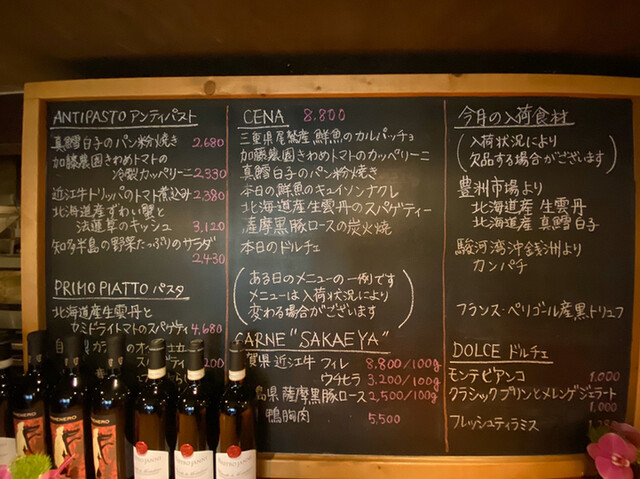 ANTIPASTO アンティパスト
真鱈白子のパン粉焼き 2,680
加藤農園きわめトマトの
冷製カッペリーニ 2,330
近江牛トリッパのトマト煮込み 2,380
北海道産ずわい蟹と
法蓮草のキッシュ 3,120
知多半島の野菜たっぷりのサラダ
2,430
PRIMO PIATTO パスタ
北海道産生雲丹と
セミドライトマトのスパゲティ 4,680
CENA 8.800
三重県尾鷲産 鮮魚のカルパッチョ
加藤農園きわめトマトのカッペリーニ
真鱈白子のパン粉焼き
本日の鮮魚のキュイソンナクレ
北海道産生雲丹のスパゲティー
薩摩黒豚ロースの炭火焼
本日のドルチェ
ある日のメニューの一例です
メニューは入荷状況により
変わる場合がございます
ARNE "SAKAEYA"
賀県 近江牛 フィレ 8,800/100g
ウチヒラ 3,200/100g
島県 薩摩黒豚ロース 2,500/100g
鴨胸肉 5,500
今月の入荷食材
入荷状況により
欠品する場合がございます
豊洲市場より
北海道産 生雲丹
北海道産 真鱈白子
駿河湾沖銭洲より
カンパチ
フランス・ペリゴール産黒トリュフ
DOLCE ドルチェ
モンテビアンコ 1,000
クラシックプリンとメレンゲジェラート
1,000
フレッシュティラミス